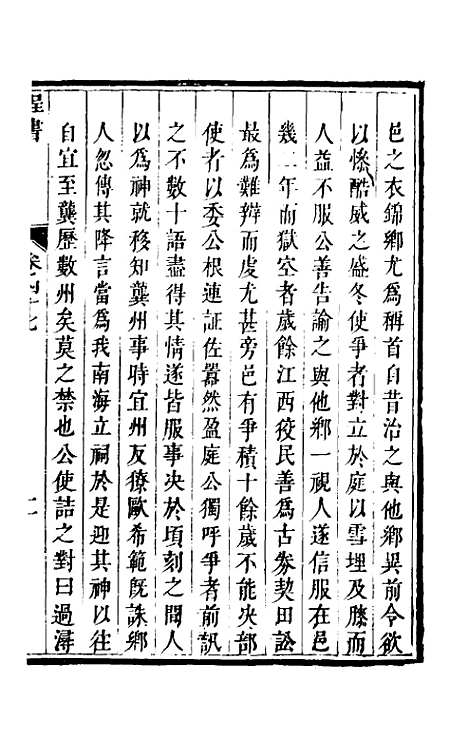 邑之衣錦鄉尤爲稱首自昔治之與他鄉異前令欲
以慘酷威之盛冬使爭者對立於庭以雪埋及膝而
人益不服公善告諭之與他鄉一視人遂信服在邑
幾二年而獄空者歲餘江西役民善爲古劵契田訟
最爲難辯而虔尤甚旁邑有爭積十餘歲不能決部
使者以委公根連証佐嚚然盈庭公獨呼爭者前訊
之不數十語盡得其情遂皆服事决於頃刻之間人
以爲神就移知龔州事時宜州反獠歐希範旣誅鄉
人忽傳其降言當爲我南海立祠於是迎其神以往
自宜至龔歷數州矣莫之禁也公使詰之對曰過潯
程書
卷四七
二